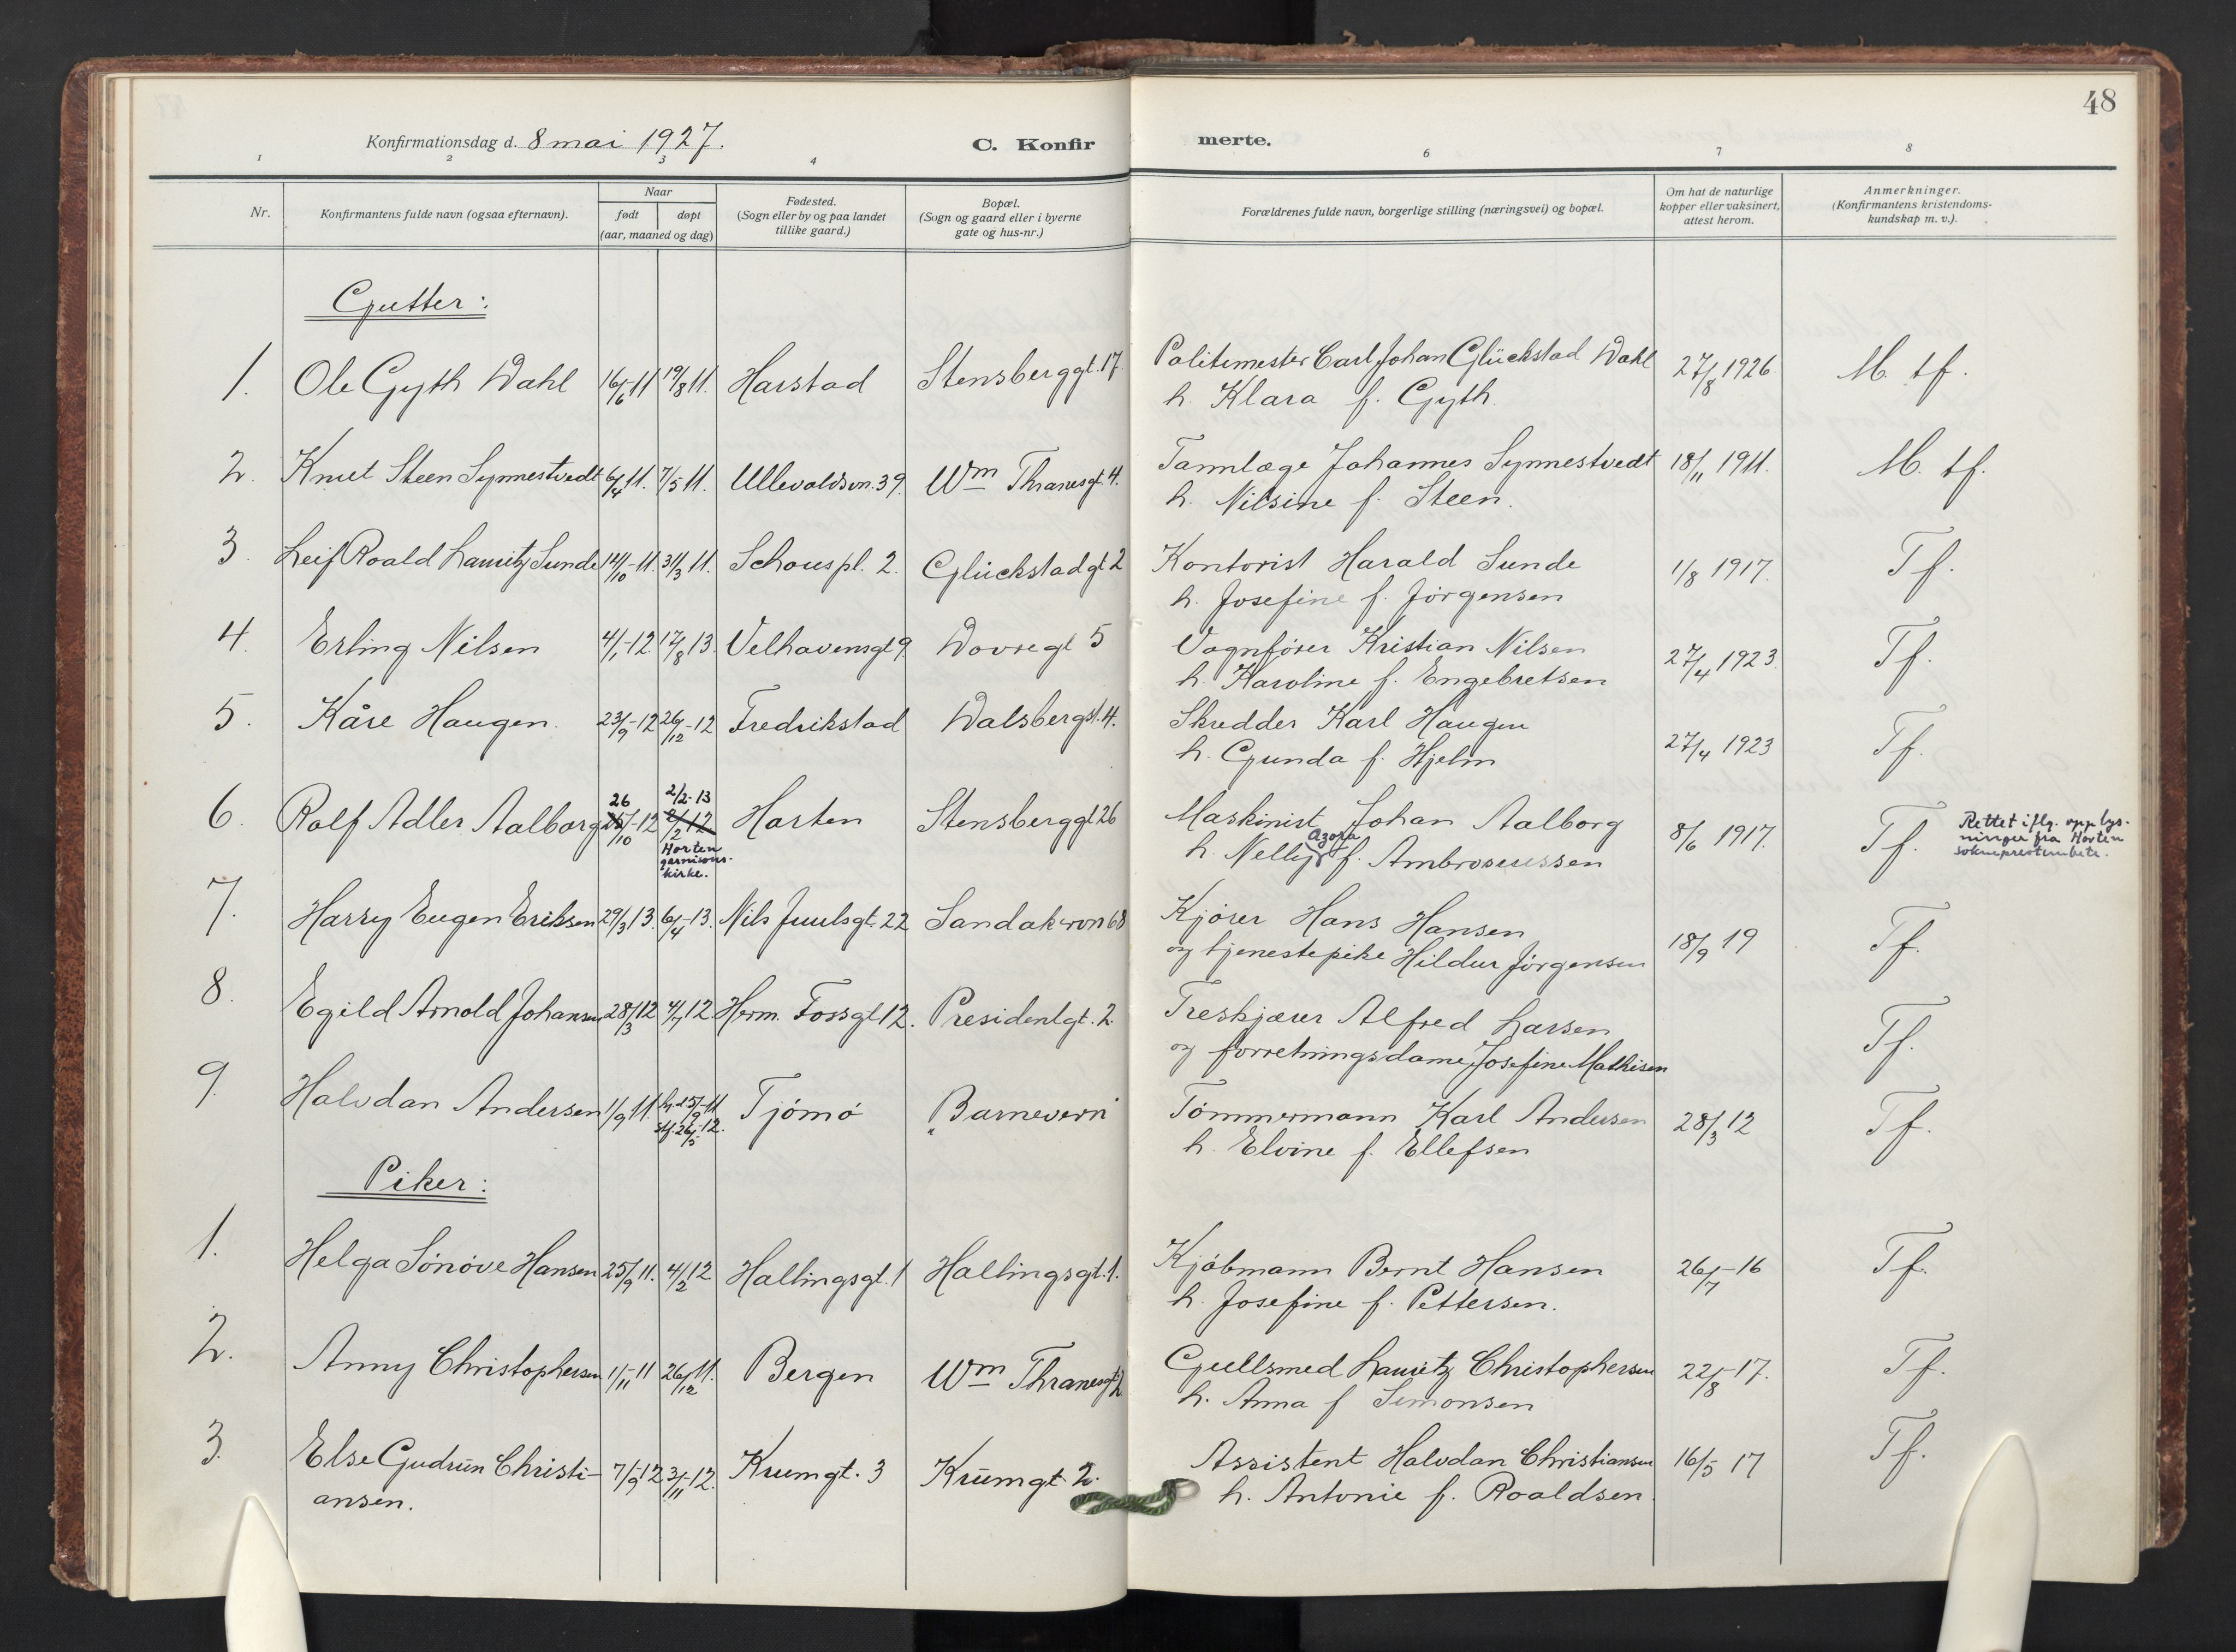 48
Konfirmationsdag d. 8 mai 1927.
C. Konfirmerte.
1 2 3 4 6 7 8
Nr.
Konfirmantens fulde navn (ogsaa efternavn).
Naar
født døpt
(aar, maaned og dag)
Fødested.
(Sogn eller by og paa landet
tillike gaard.)
Bopæl.
(Sogn og gaard eller i byerne
gate og hus-nr.)
Forældrenes fulde navn, borgerlige stilling (næringsvei) og bopæl.
Om hat de naturlige
kopper eller vaksinert,
attest herom.
Anmerkninger.
(Konfirmantens kristendoms-
kundskap m. v.).
Gutter:
1. Ole Gyth Wahl 16/6 11 19/8 11. Harstad Stensberggt. 17 Politimester Carl Johan Glückstad Wahl 27/8 1926 M. tf.
h. Klara f. Gyth.
2. Knut Steen Synnestvedt 6/4 11. 7/5 11. Ullevoldsvn. 39. Wm Thranesgt. 4. Tannlæge Johannes Synnestvedt 18/11 1911. M. tf.
h. Nilsine f. Steen.
3. Leif Roald Lauritz Sunde 14/10-11. 31/3 11. Schouspl. 2. Glückstadgt 2 Kontorist Harald Sunde 1/8 1917. Tf.
h. Josefine f. Jørgensen
4. Erling Nilsen 4/1-12. 17/8 13. Velhavensgt 9. Dovregt 5 Vognfører Kristian Nilsen 27/4 1923. Tf.
h. Karoline f. Engebretsen
5. Kåre Haugen. 23/9-12 26/12-12 Fredrikstad Walsbergst. 4. Skredder Karl Haugen 27/4 1923 Tf.
h. Gunda f. Hjelm
6. Rolf Adler Aalborg 26 25/10-12 2/2-13 2/2 12 Horten Stensberggt 26 Maskinist Johan Aalborg 8/6 1917. Tf. Rettet iflg. opplys-
Horten garnisons-kirke. h. Nelly Azora f. Ambrosiussen ninger fra Horten
sokneprestembete.
7. Harry Eugen Eriksen 29/3 13. 6/4-13. Nils Juulsgt. 22 Sandakervn 68 Kjører Hans Hansen 18/9 19 Tf.
og tjenestepike Hildur Jørgensen
8. Egild Arnold Johansen 28/3 12 4/7 12. Herm. Fossgt 12. Presidentgt. 2. Treskjærer Alfred Larsen Tf.
og forretningsdame Josefine Mathisen
9. Halvdan Andersen 1/9 11. hj.d 15/9-11 Tjømø "Barnevern" Tømmermann Karl Andersen 28/3 12 Tf.
stf. 26/5-12. h. Elvine f. Ellefsen
Piker:
1. Helga Sønøve Hansen 25/9 11. 4/2 12 Hallingsgt. 1 Hallingsgt. 1. Kjøbmann Bernt Hansen 26/7-16 Tf.
h. Josefine f. Pettersen.
2. Anny Christophersen 1/11-11 26/12 11. Bergen Wm Thranesgt 2 Gullsmed Lauritz Christophersen 22/8-17. Tf.
h. Anna f Simonsen
3. Else Gudrun Christi- 7/9-12 3/11-12. Krumgt. 3 Krumgt 2. Assistent Halvdan Christiansen 16/5 17 Tf.
ansen. h. Antonie f. Roaldsen.